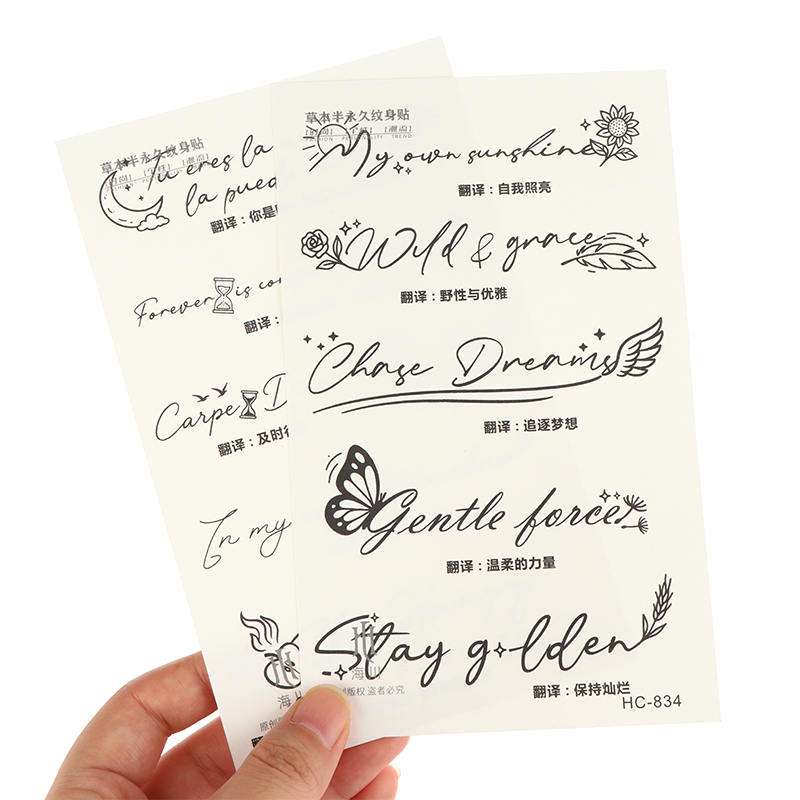 草本半永久纹身贴
[时尚] [个性] [潮流]
FASHION PERSONALITY TREND
Tu eres la
la
翻译：你是
Forever is
翻译：
Carpe D
翻译：及时
In my
海
原创
草本半永久纹身贴
[时尚] [个性] [潮流]
FASHION PERSONALITY TREND
My own sunshine
翻译：自我照亮
Wild & grace
翻译：野性与优雅
Chase Dreams
翻译：追逐梦想
Gentle force
翻译：温柔的力量
Stay golden
翻译：保持灿烂
海山
版权 盗者必究
HC-834